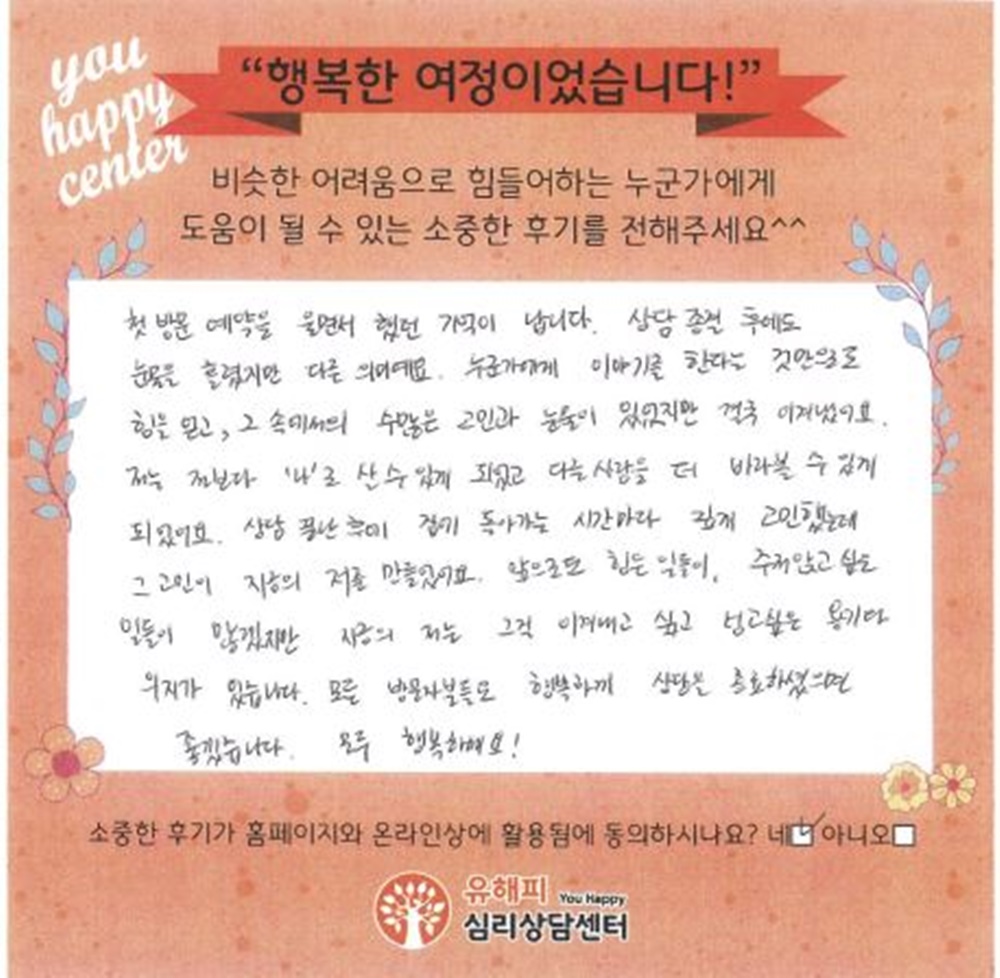 you
happy
center
“행복한 여정이었습니다!”
비슷한 어려움으로 힘들어하는 누군가에게
도움이 될 수 있는 소중한 후기를 전해주세요^^
첫 방문 예약을 울면서 했던 기억이 납니다. 상담 종결 후에도
눈물을 흘렸지만 다른 의미예요. 누군가에게 이야기를 한다는 것만으로도
힘을 얻고, 그 속에서의 수많은 고민과 눈물이 있었지만 결국 이겨냈어요.
저는 전보다 '나'로 산 수 있게 되었고 다른 사람을 더 바라볼 수 있게
되었어요. 상담 끝난 후에 집에 돌아가는 시간마다 깊게 고민했는데
그 고민이 지금의 저를 만들었어요. 앞으로도 힘든 일들이, 주저앉고 싶은
일들이 많겠지만 지금의 저는 그걸 이겨내고 싶고 넘고싶은 용기와
의지가 있습니다. 모든 방문자분들도 행복하게 상담을 종료하셨으면
좋겠습니다. 모두 행복하세요!
소중한 후기가 홈페이지와 온라인상에 활용됨에 동의하시나요? 네 아니오
유해피 You Happy
심리상담센터